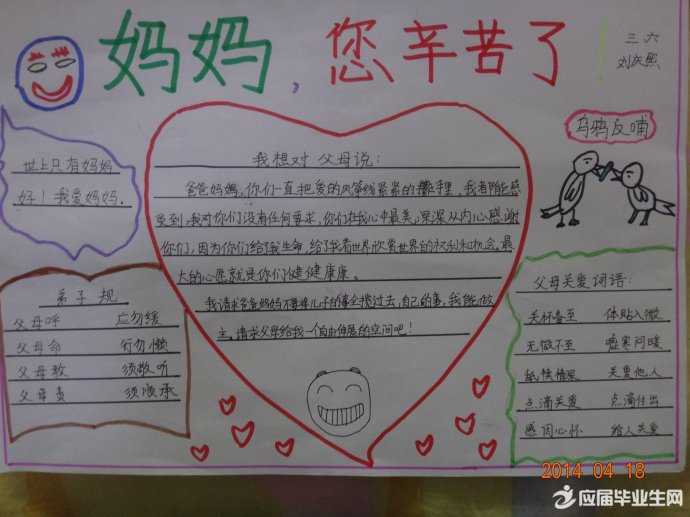 妈妈，您辛苦了
三六
刘庆熙
世上只有妈妈
好！我爱妈妈.
我想对父母说：
爸爸妈妈，你们一直把爱的风筝线紧紧的攥手里，我者能感
受到，我对你们没有任何要求，你们在我心中最美，深深从内心感谢
你们，因为你们给了我生命，给了我看世界欣赏世界的权利和机会。最
大的心愿就是你们健健康康。
我请求爸爸妈妈不要将儿子的事全揽过去，自己的事，我能做
主，请求父母给我一个自由伸展的空间吧！
乌鸦反哺
弟子规
父母呼 应勿缓
父母命 行勿懒
父母教 须敬听
父母责 须顺承
父母关爱词语：
关怀备至 体贴入微
无微不至 嘘寒问暖
关爱他人
点滴关爱 点滴付出
感恩心怀 给人关爱
2014 04 18
应届毕业生网